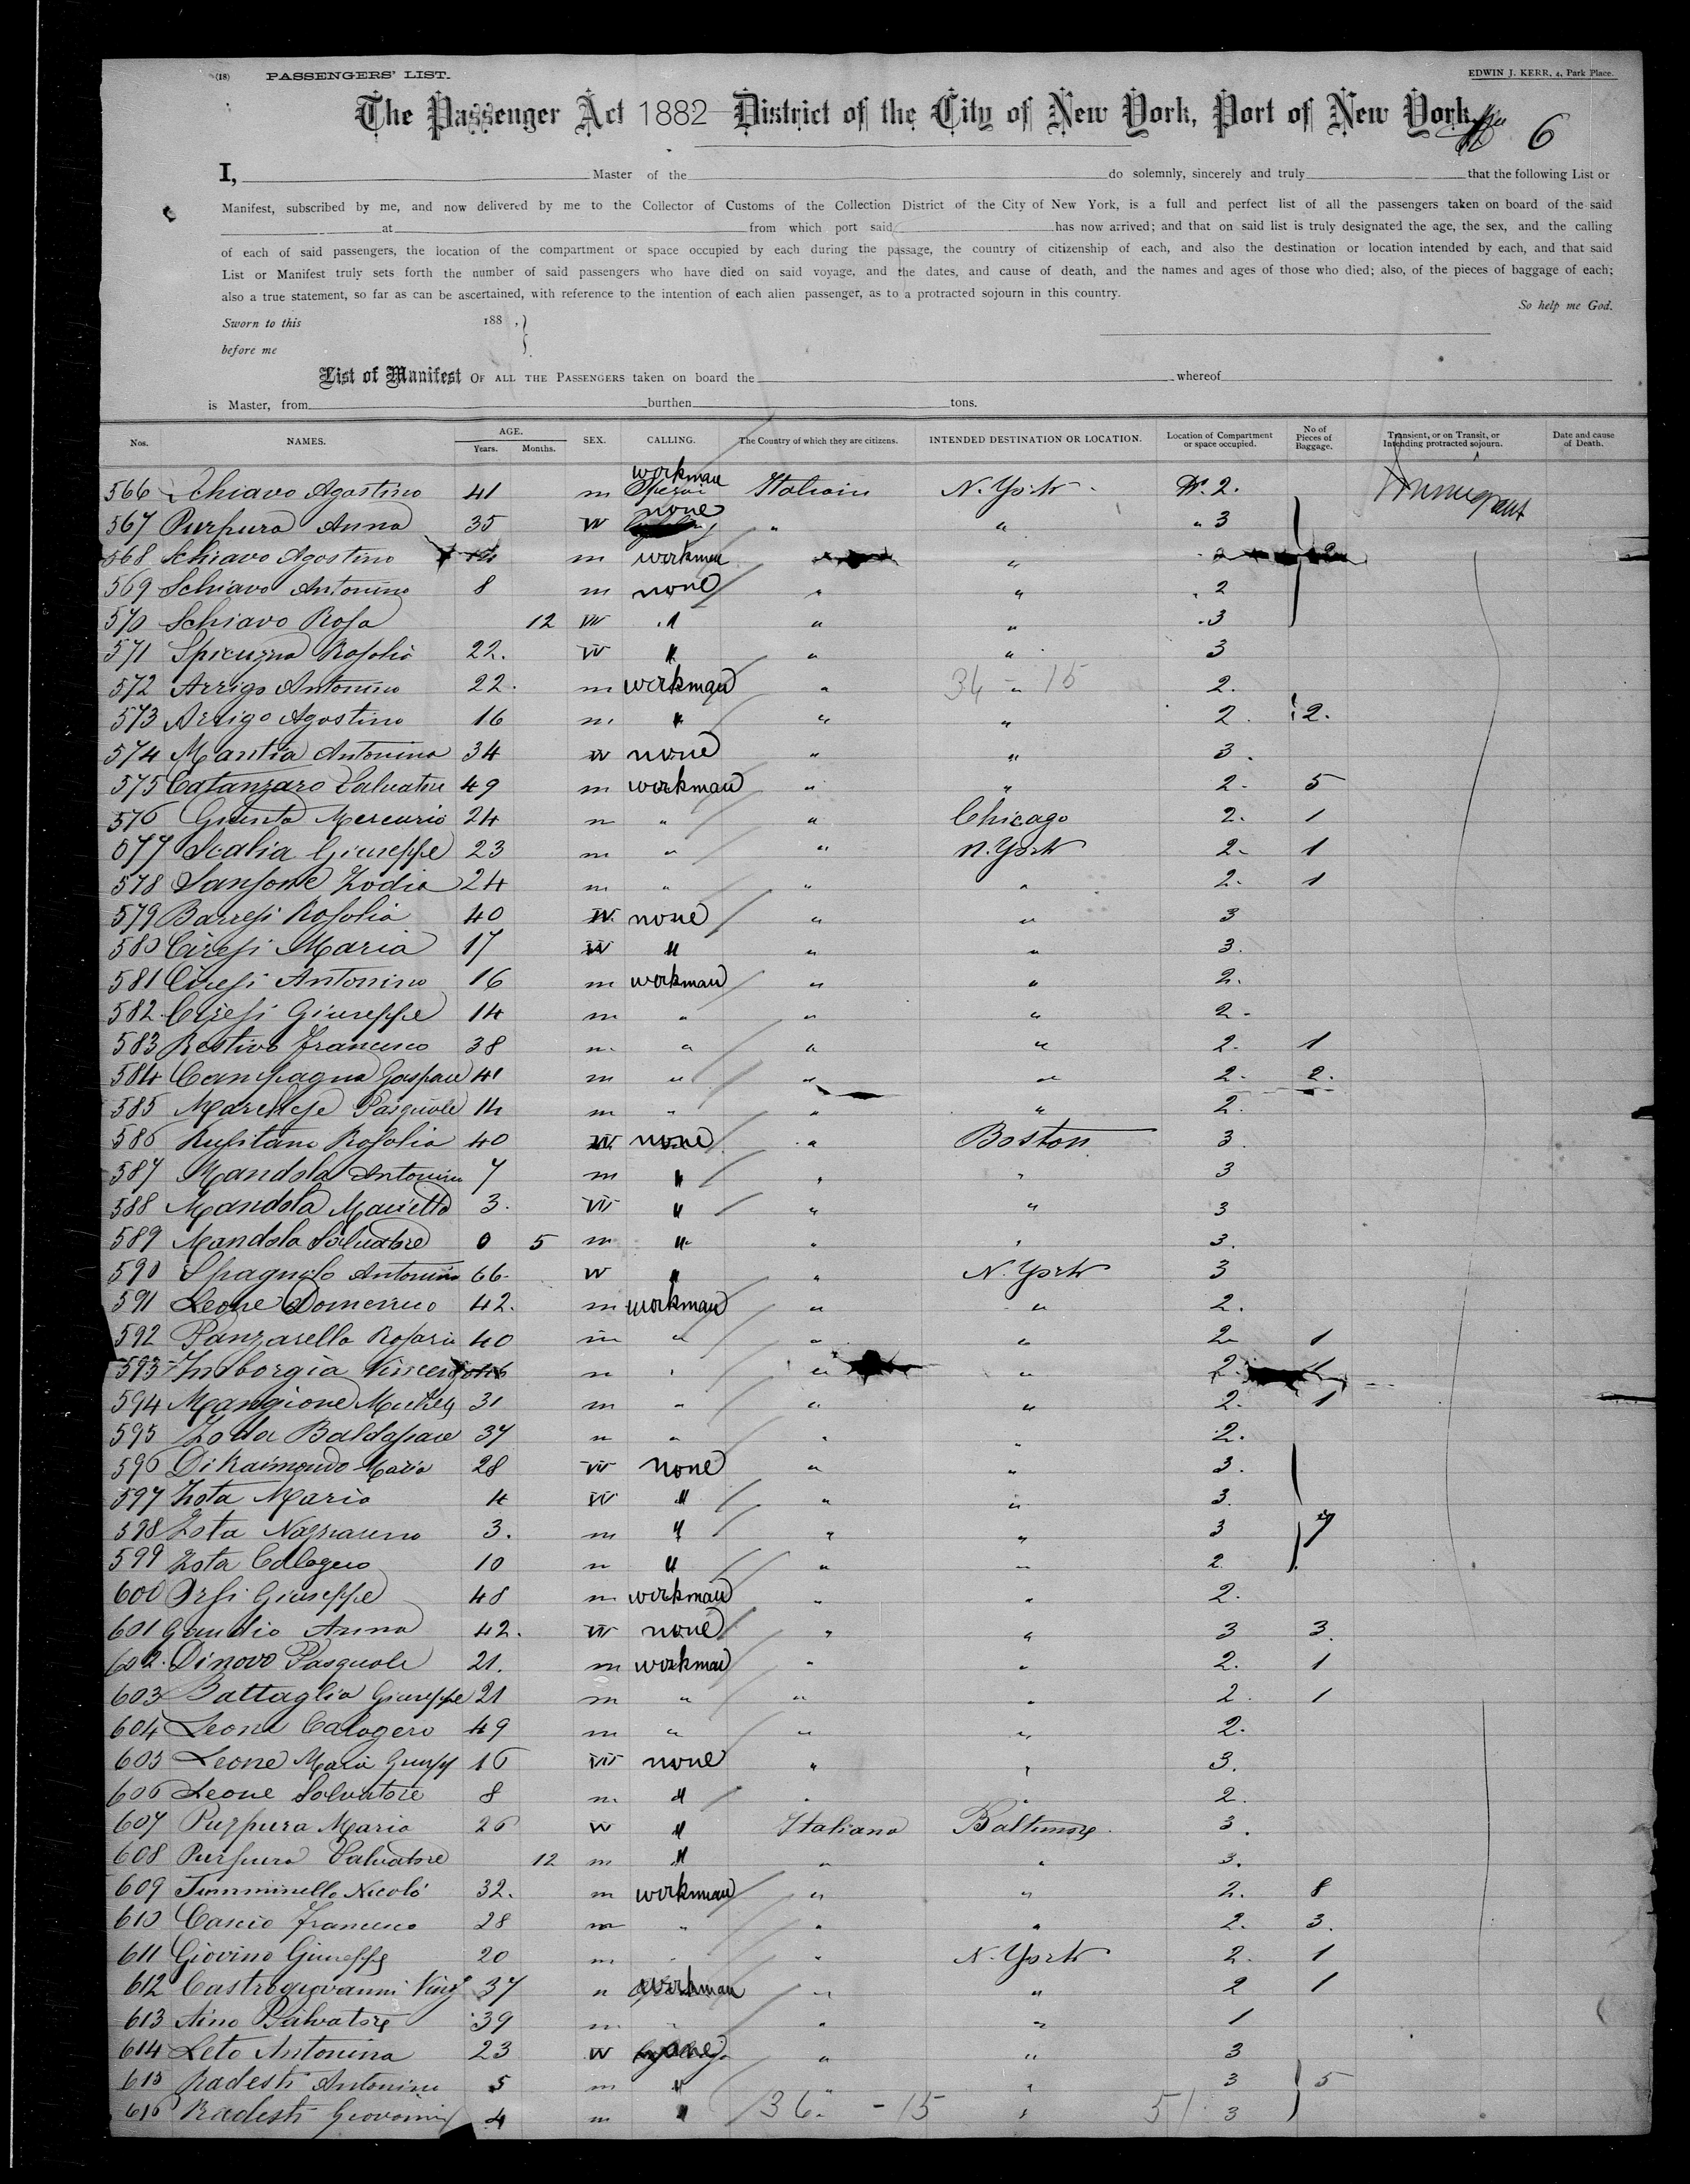 (18) PASSENGERS' LIST. EDWIN J. KERR, 4, Park Place.
The Passenger Act 1882 District of the City of New York, Port of New York.
6
I, Master of the do solemnly, sincerely and truly that the following List or
Manifest, subscribed by me, and now delivered by me to the Collector of Customs of the Collection District of the City of New York, is a full and perfect list of all the passengers taken on board of the said
at from which port said has now arrived; and that on said list is truly designated the age, the sex, and the calling
of each of said passengers, the location of the compartment or space occupied by each during the passage, the country of citizenship of each, and also the destination or location intended by each, and that said
List or Manifest truly sets forth the number of said passengers who have died on said voyage, and the dates, and cause of death, and the names and ages of those who died; also, of the pieces of baggage of each;
also a true statement, so far as can be ascertained, with reference to the intention of each alien passenger, as to a protracted sojourn in this country.
So help me God.
Sworn to this 188 ,
before me
List of Manifest OF ALL THE PASSENGERS taken on board the whereof
is Master, from burthen tons.
Nos. NAMES. AGE. Years. Months. SEX. CALLING. The Country of which they are citizens. INTENDED DESTINATION OR LOCATION. Location of Compartment or space occupied. No of Pieces of Baggage. Transient, or on Transit, or Intending protracted sojourn. Date and cause of Death.
566 Schiavo Agostino 41 m workman Italian N. York 2.
567 Purpura Anna 35 w none " " " 3
568 Schiavo Agostino m workman "
569 Schiavo Antonino 8 m none " " " 2
570 Schiavo Rosa 12 w " " " 3
571 Rosalia 22. w " " " 3
572 Arrigo Antonino 22. m workman " 34 " 15 2.
573 Arrigo Agostino 16 m " " " 2 2.
574 Mantia Antonina 34 w none " " 3.
575 Catanzaro Salvatore 49 m workman " " 2. 5
576 Giunta Mercurio 24 m " " Chicago 2. 1
577 Scalia Giuseppe 23 m " " N. York 2. 1
578 Sansone 24 m " " " 2. 1
579 Barresi Rosolia 40 w none " " 3
580 Ciresi Maria 17 w " " " 3.
581 Ciresi Antonino 16 m workman " " 2.
582. Ciresi Giuseppe 14 m " " " 2.
583 Restivo Francesco 38 m " " " 2. 1
584 Campagna Gaspare 41 m " " " 2. 2.
585 Marchese Pasquale 14 m " " " 2.
586 Rosolia 40 w none " Boston 3.
587 Mandola Antonino 7 m " " " 3
588 Mandola Marietta 3. w " " " 3
589 Mandola Salvatore 0 5 m " " " 3.
590 Spagnolo Antonina 66. w " " N. York 3
591 Leone Domenico 42. m workman " " 2.
592 Panzarella Rosario 40 m " " " 2 1
593 m " " " 2.
594 Mangione 31 m " " " 2. 1
595 Baldassare 37 m " " " 2.
596 Di Raimondo Maria 28 w none " " 3.
597 Zota Maria 4 w " " " 3.
598 Zota 3. m " " " 3 7
599 Zota Calogero 10 m " " " 2
600 Orsi Giuseppe 48 m workman " " 2.
601 Gaudio Anna 42. w none " " 3 3.
602. Dinovo Pasquale 21. m workman " " 2. 1
603 Battaglia Giuseppe 21 m " " " 2 1
604 Leone Calogero 49 m " " " 2.
605 Leone Maria 16 w none " " 3.
606 Leone Salvatore 8 m " " " 2.
607 Purpura Maria 26 w " Italiana Baltimore 3.
608 Purpura Salvatore 12 m " " " 3.
609 Tumminello Nicoló 32. m workman " " 2. 8
610 Cascio Francesco 28 m " " " 2. 3.
611 Giovino Giuseppe 20 m " " N. York 2. 1
612 Castrogiovanni 37 m workman " " 2 1
613 Salvatore 39 m " " " 1
614 Leto Antonina 23 w none " " 3
615 Radesti Antonino 5 m " " " 3 5
616 Radesti 4 m " 36. - 15 " 51 3